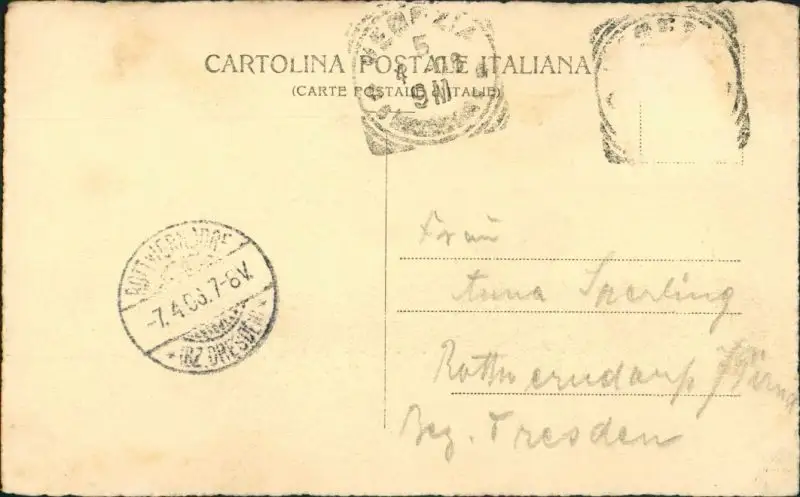 VENEZIA
5
4 06
9 M
CARTOLINA POSTALE ITALIANA
(CARTE POSTALE D'ITALIE)
ROTTWERNDORF
-7.4.06.7-8V.
* (BZ.DRESDEN) *
Frau
Anna Sperling
Rottwerndorf / Pirna
Bez. Dresden